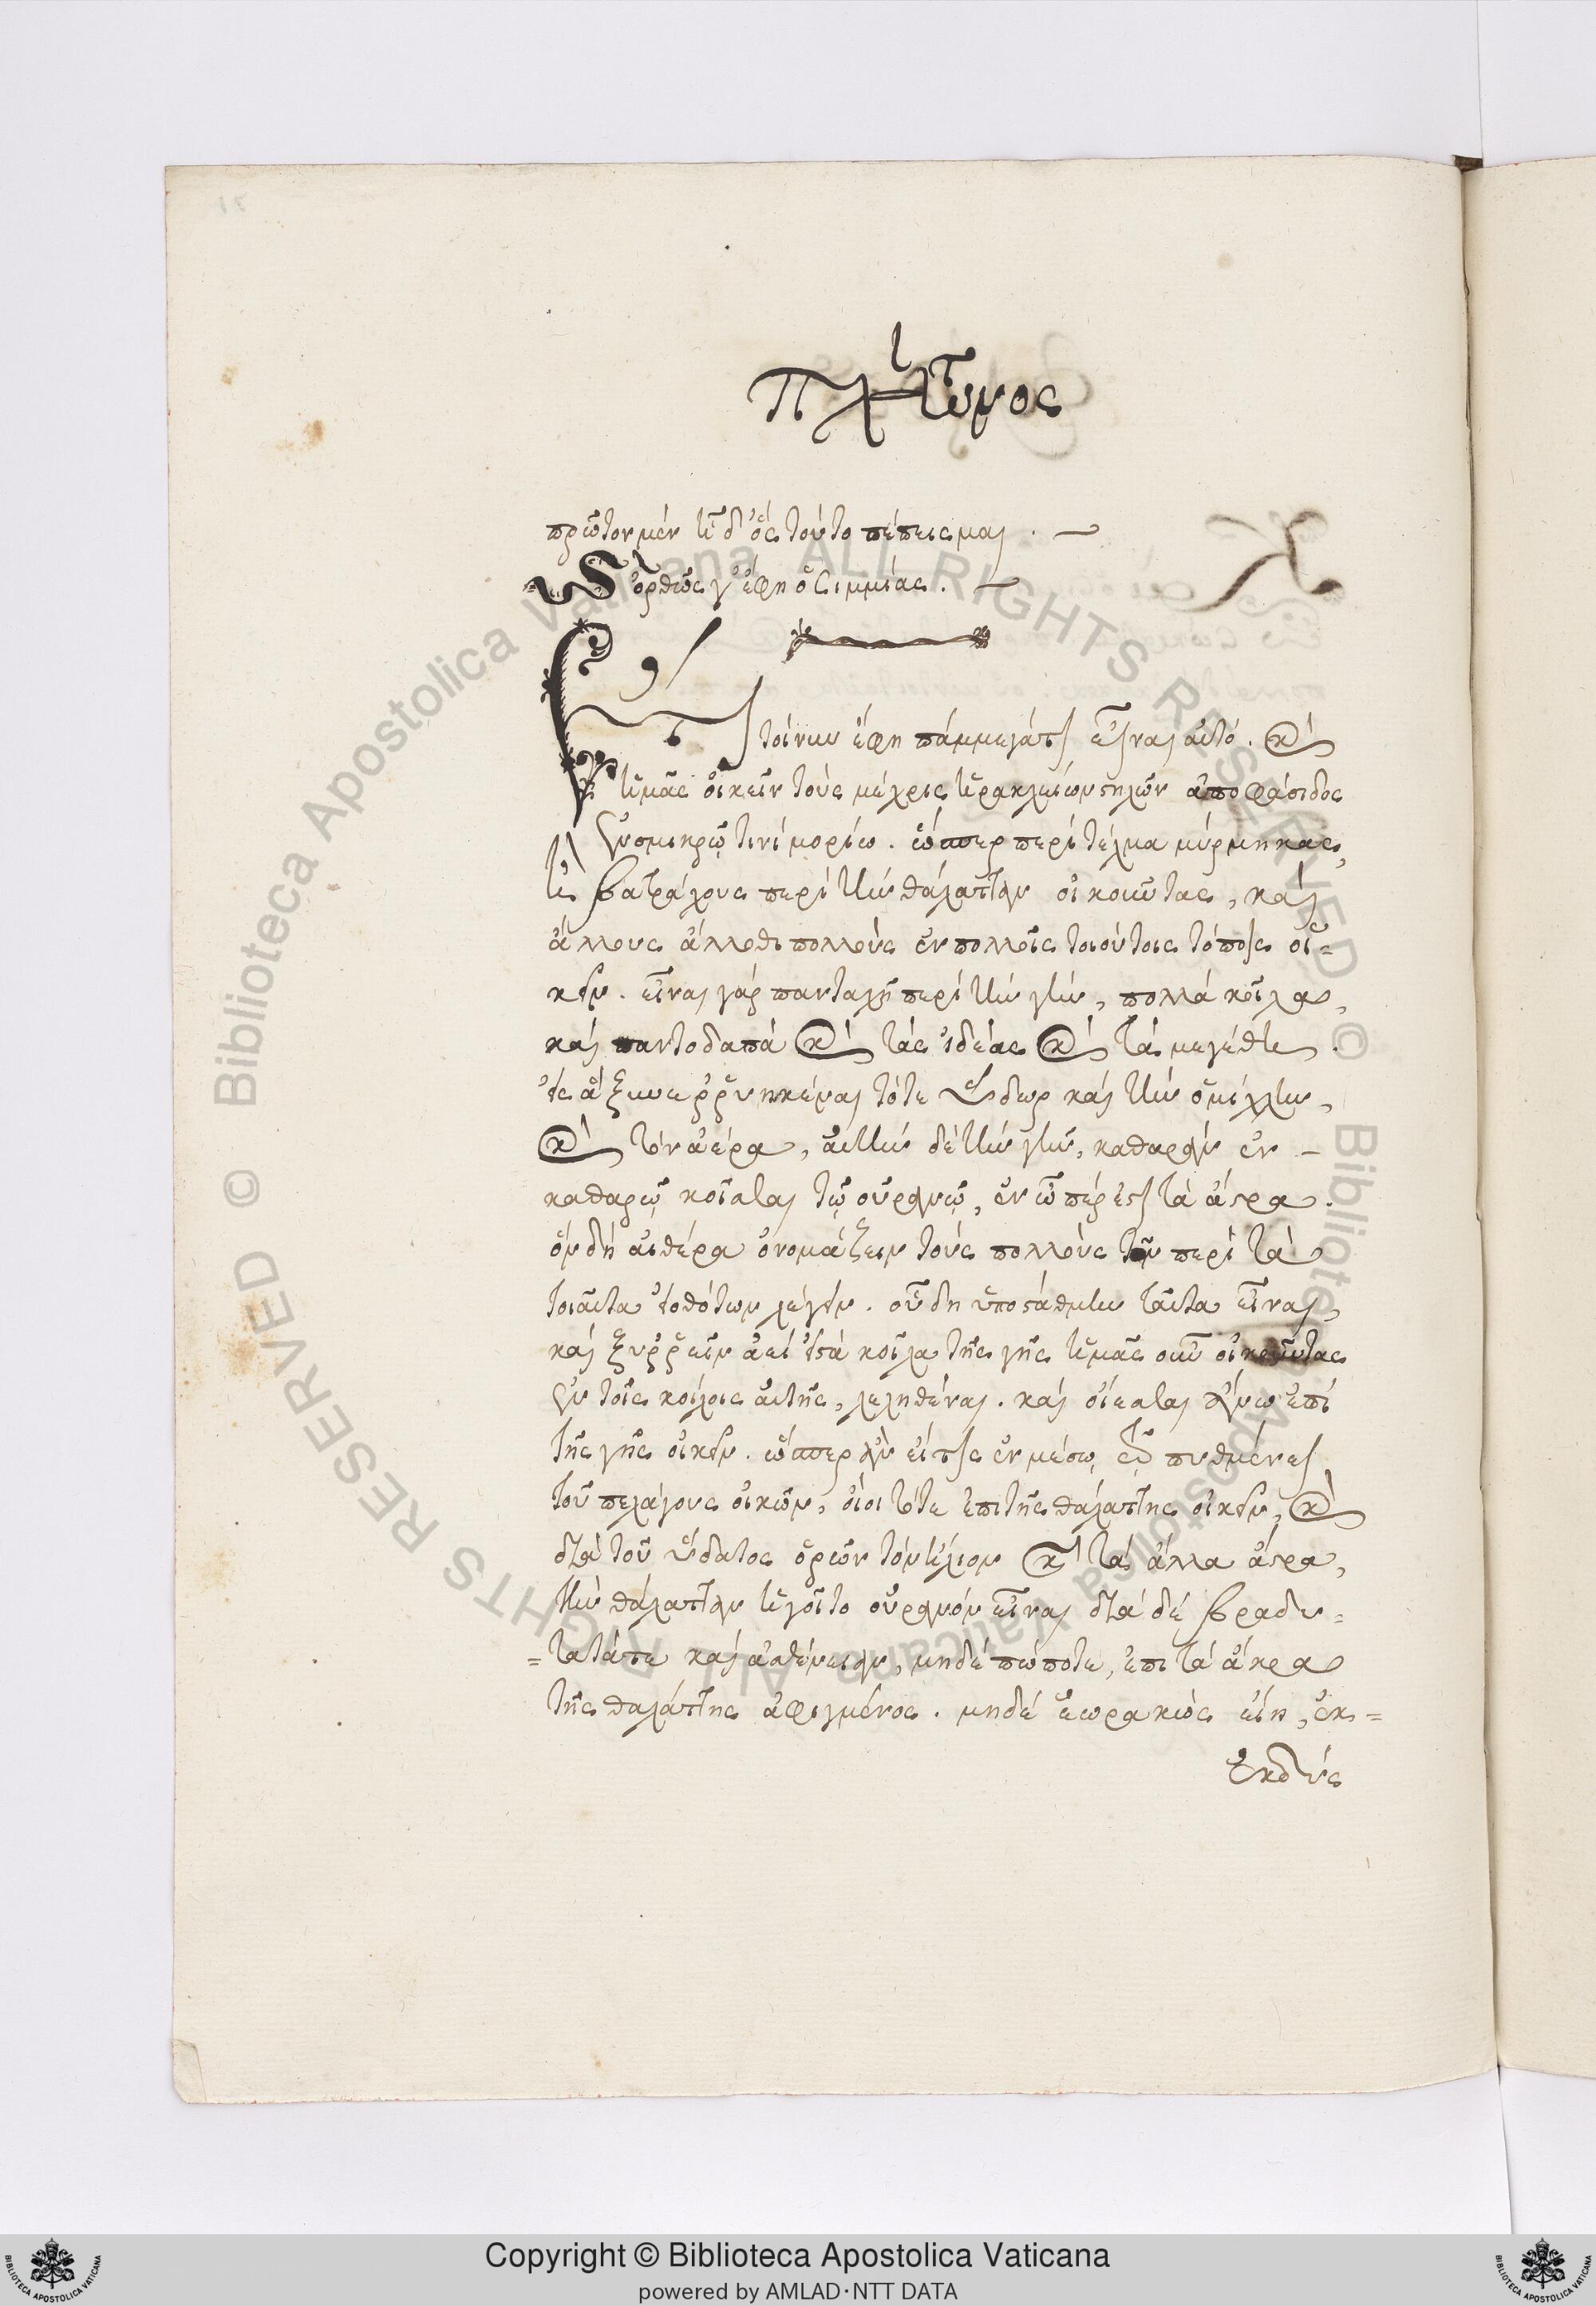 Πλάτωνος
πρῶτον μέν ἦ δ' ὅς τοῦτο πέπεισμαι . —
Καὶ ὀρθῶς γ' ἔφη ὁ Σιμμίας . —
Ἔτι τοίνυν ἔφη πάμμεγάτι εἶναι αὐτό . καὶ
ἡμᾶς οἰκεῖν τοὺς μέχρις ἡρακλείων στηλῶν ἀπο φάσιδος
ἐν σμικρῷ τινί μορίῳ . ὥσπερ περὶ τέλμα μύρμηκας,
ἢ βατράχους περὶ τὴν θάλατταν οἰκοῦντας, καὶ
ἄλλους ἄλλοθι πολλοὺς ἐν πολλοῖς τοιούτοις τόποις οἰ=
κεῖν . εἶναι γάρ πανταχῇ περὶ τὴν γῆν, πολλά κοῖλα,
καὶ παντοδαπά καὶ τὰς ἰδέας καὶ τὰ μεγέθη .
εἰς ἃ ξυνερρυηκέναι τό τε ὕδωρ καὶ τὴν ὁμίχλην,
καὶ τὸν ἀέρα, αὐτὴν δὲ τὴν γῆν, καθαρὰν ἐν –
καθαρῷ κεῖσθαι τῷ οὐρανῷ, ἐν ᾧ πέρ ἐστι τὰ ἄστρα .
ὅν δή αἰθέρα ὀνομάζειν τοὺς πολλοὺς τῶν περὶ τὰ
τοιαῦτα εἰωθότων λέγειν . οὗ δη ὑποστάθμην ταῦτα εἶναι,
καὶ ξυρρεῖν ἀεί εἰς τὰ κοῖλα τῆς γῆς ἡμᾶς οὖν οἰκοῦντας
ἐν τοῖς κοίλοις αὐτῆς, λεληθέναι . καὶ οἴεσθαι ἄνω ἐπί
τῆς γῆς οἰκεῖν . ὥσπερ ἂν εἴ τις ἐν μέσῳ τῷ πυθμένει
τοῦ πελάγους οἰκῶν, οἴοιτό τε ἐπι τῆς θαλάττης οἰκεῖν, καὶ
διὰ τοῦ ὕδατος ὁρῶν τὸν ἥλιον καὶ τὰ ἄλλα ἄστρα,
τὴν θάλατταν ἡγοῖτο οὐρανόν εἶναι διὰ δέ βραδυ=
=τατάτε καὶ ἀσθένειαν, μηδέ πώποτε, ἐπι τὰ ἄκρα
τῆς θαλάττης ἀφιγμένος . μηδέ ἑωρακὼς εἴη, ἐκ=
ἐκδύς
Copyright © Biblioteca Apostolica Vaticana
powered by AMLAD·NTT DATA